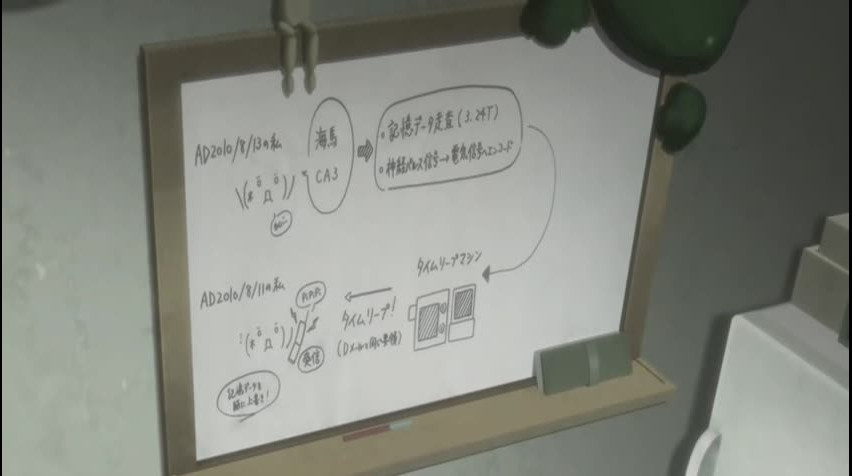 AD2010/8/13の私
海馬
CA3
。記憶データ走査(3.24T)
。神経パルス信号→電気信号へエンコード
タイムリープマシン
AD2010/8/11の私
タイムリープ!
受信
(Dメールと同じ要領)
記憶データを
脳に上書き!